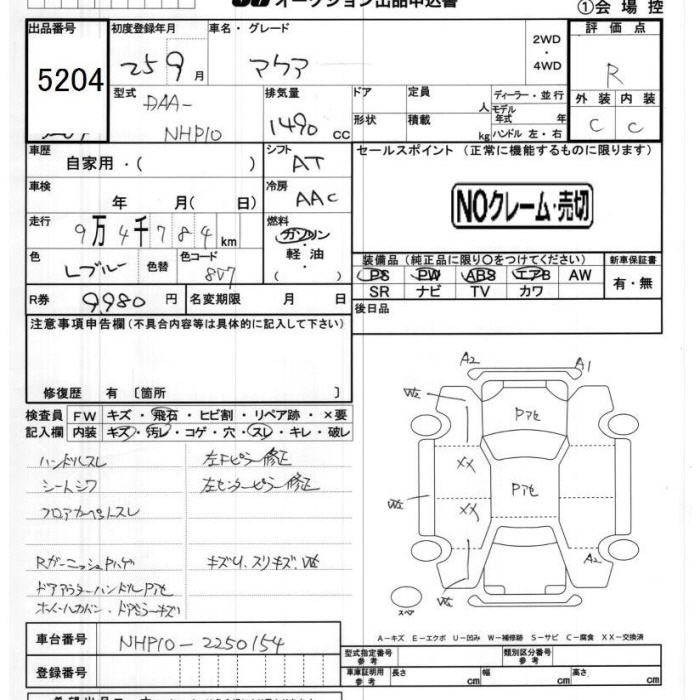 オークション出品申込書
①会場控
出品番号 初度登録年月 車名・グレード 2WD・4WD 評価点
5204 25 9月 アクア R
型式 排気量 ドア 定員 人 ディーラー・並行 外装 内装
DAA-NHP10 1490cc 形状 積載 kg モデル年式 年 ハンドル 左・右 C C
車歴 自家用・( ) シフト AT セールスポイント (正常に機能するものに限ります)
車検 年 月( 日) 冷房 AAC
NOクレーム・売切
走行 9万4千784km 燃料 ガソリン・軽油・( )
色 Lブルー 色替 色コード 8V7
装備品 (純正品に限り○をつけてください) 新車保証書
PS PW ABS エアB AW 有・無
SR ナビ TV カワ
R券 9980円 名変期限 月 日
後日品
注意事項申告欄 (不具合内容等は具体的に記入して下さい)
修復歴 有 〔箇所 〕
検査員 FW キズ・飛石・ヒビ割・リペア跡・×要
記入欄 内装 キズ・汚レ・コゲ・穴・スレ・キレ・破レ
ハンドルスレ 左Fピラー修正
シートシワ 左センターピラー修正
フロアカーペットスレ
RガーニッシュPハゲ キズU.スリキズ.W2
ドアアウターハンドルPアセ
A2 A1
W2 Pアセ
XX Pアセ
W2 XX
W2 A2
スペア
A-キズ E-エクボ U-凹み W-補修跡 S-サビ C-腐食 XX-交換済
車台番号 NHP10-2250154
登録番号
型式指定番号 参考 類別区分番号 参考
車庫証明用 参考 長さ cm 幅 cm 高さ cm